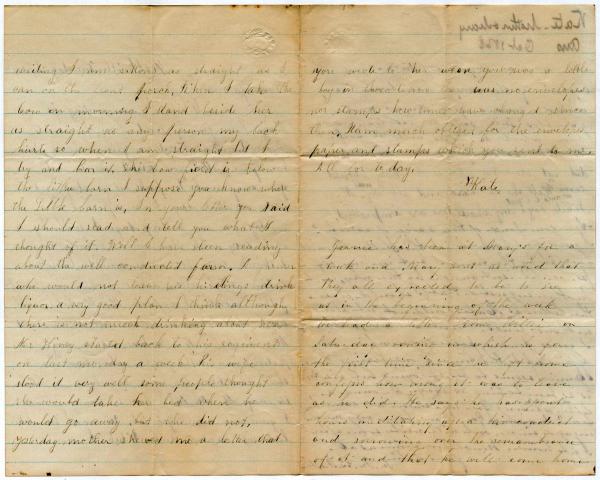 writing I am sitting as straight as I
can on the front piece, When I take the
cow on morning I stand beside her
as straight as any person my back
hurts so when I am straight but I
try and bear it. The cow field is below
the little barn I suppose you know where
the little barn is, In your letter you said
I should read and tell you what I
thought of it. Well I have been reading
about the well conducted farm. I
who would not his hirelings drink
liquor a very good plan I think although
there is not much drinking about here
Mr Kiney started back to his regiment
on last monday a week his wife
stood it very well some people thought
she would take her bed when he
would go away but she did not,
yesterday mother showed me a letter that
Kate
Oct 186
you wrote to her when you was a little
boy in there was no envelopes
nor stamps how times have changed since
then, I am much obliged for the envelopes
paper and stamps which you sent to me
to day.
Kate
Jennie has been at Mary's for a
week and Mary sent us word that
they all expected to be to see
us in the beginning of the week
we had a letter from Willie on
Saturday evening in which he
the first time since he left home
how wrong it was to leave
as he did. He says he has spent
hours meditating upon his conduct
and sorrowing over the remembrance
of it and that he will come home